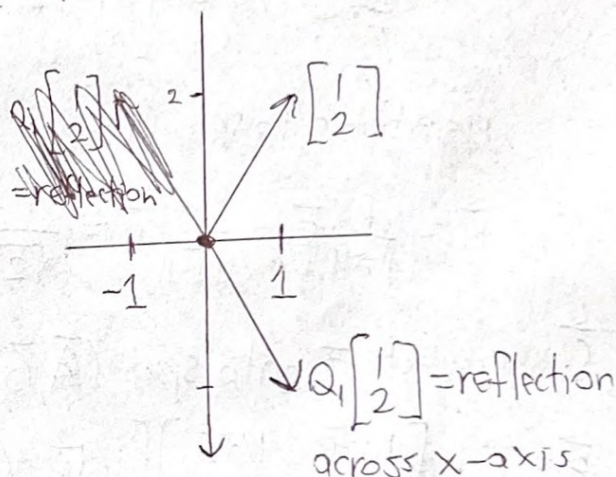 2
[1 2]
[2]
=reflection
-1
1
Q₁[1 2] =reflection
across x-axis